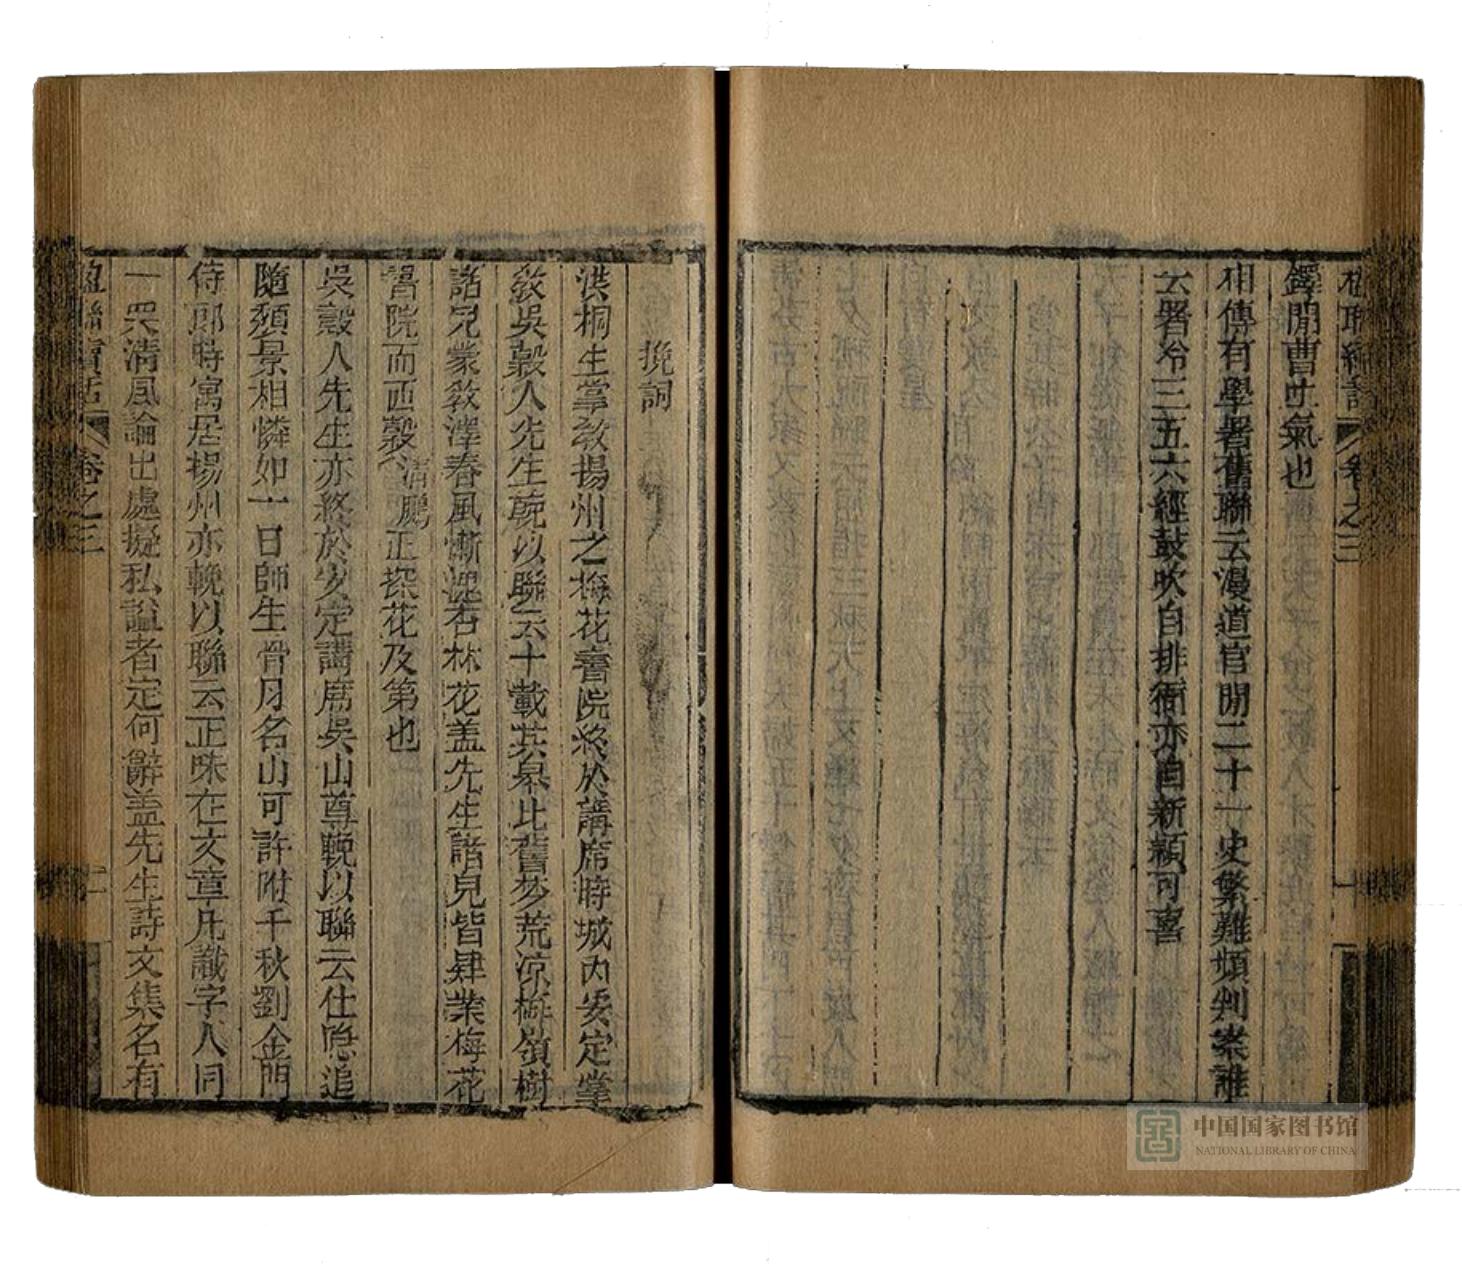 楹聯續話 卷之三
鐸閒曹吐氣也
相傳有學署舊聯云漫道官閒二十一史繁難頻判案誰
云署冷三五六經鼓吹自排衙亦自新穎可喜
挽詞
洪桐生掌教揚州之梅花書院終於講席時城內安定掌
教吳穀人先生輓以聯云十載共皋比舊夢荒涼梅嶺樹
諸兄蒙教澤春風慚愧石林花盖先生諸兒皆肄業梅花
書院而西穀清鵬正探花及第也
吳穀人先生亦終於安定講席吳山尊輓以聯云仕隱追
隨頹景相憐如一日師生骨月名山可許附千秋劉金門
侍郎時寓居揚州亦輓以聯云正味在文章凡識字人同
一哭清風論出處擬私諡者定何辭盖先生詩文集名有
楹聯續話 卷之三 二
中国国家图书馆
NATIONAL LIBRARY OF CHINA